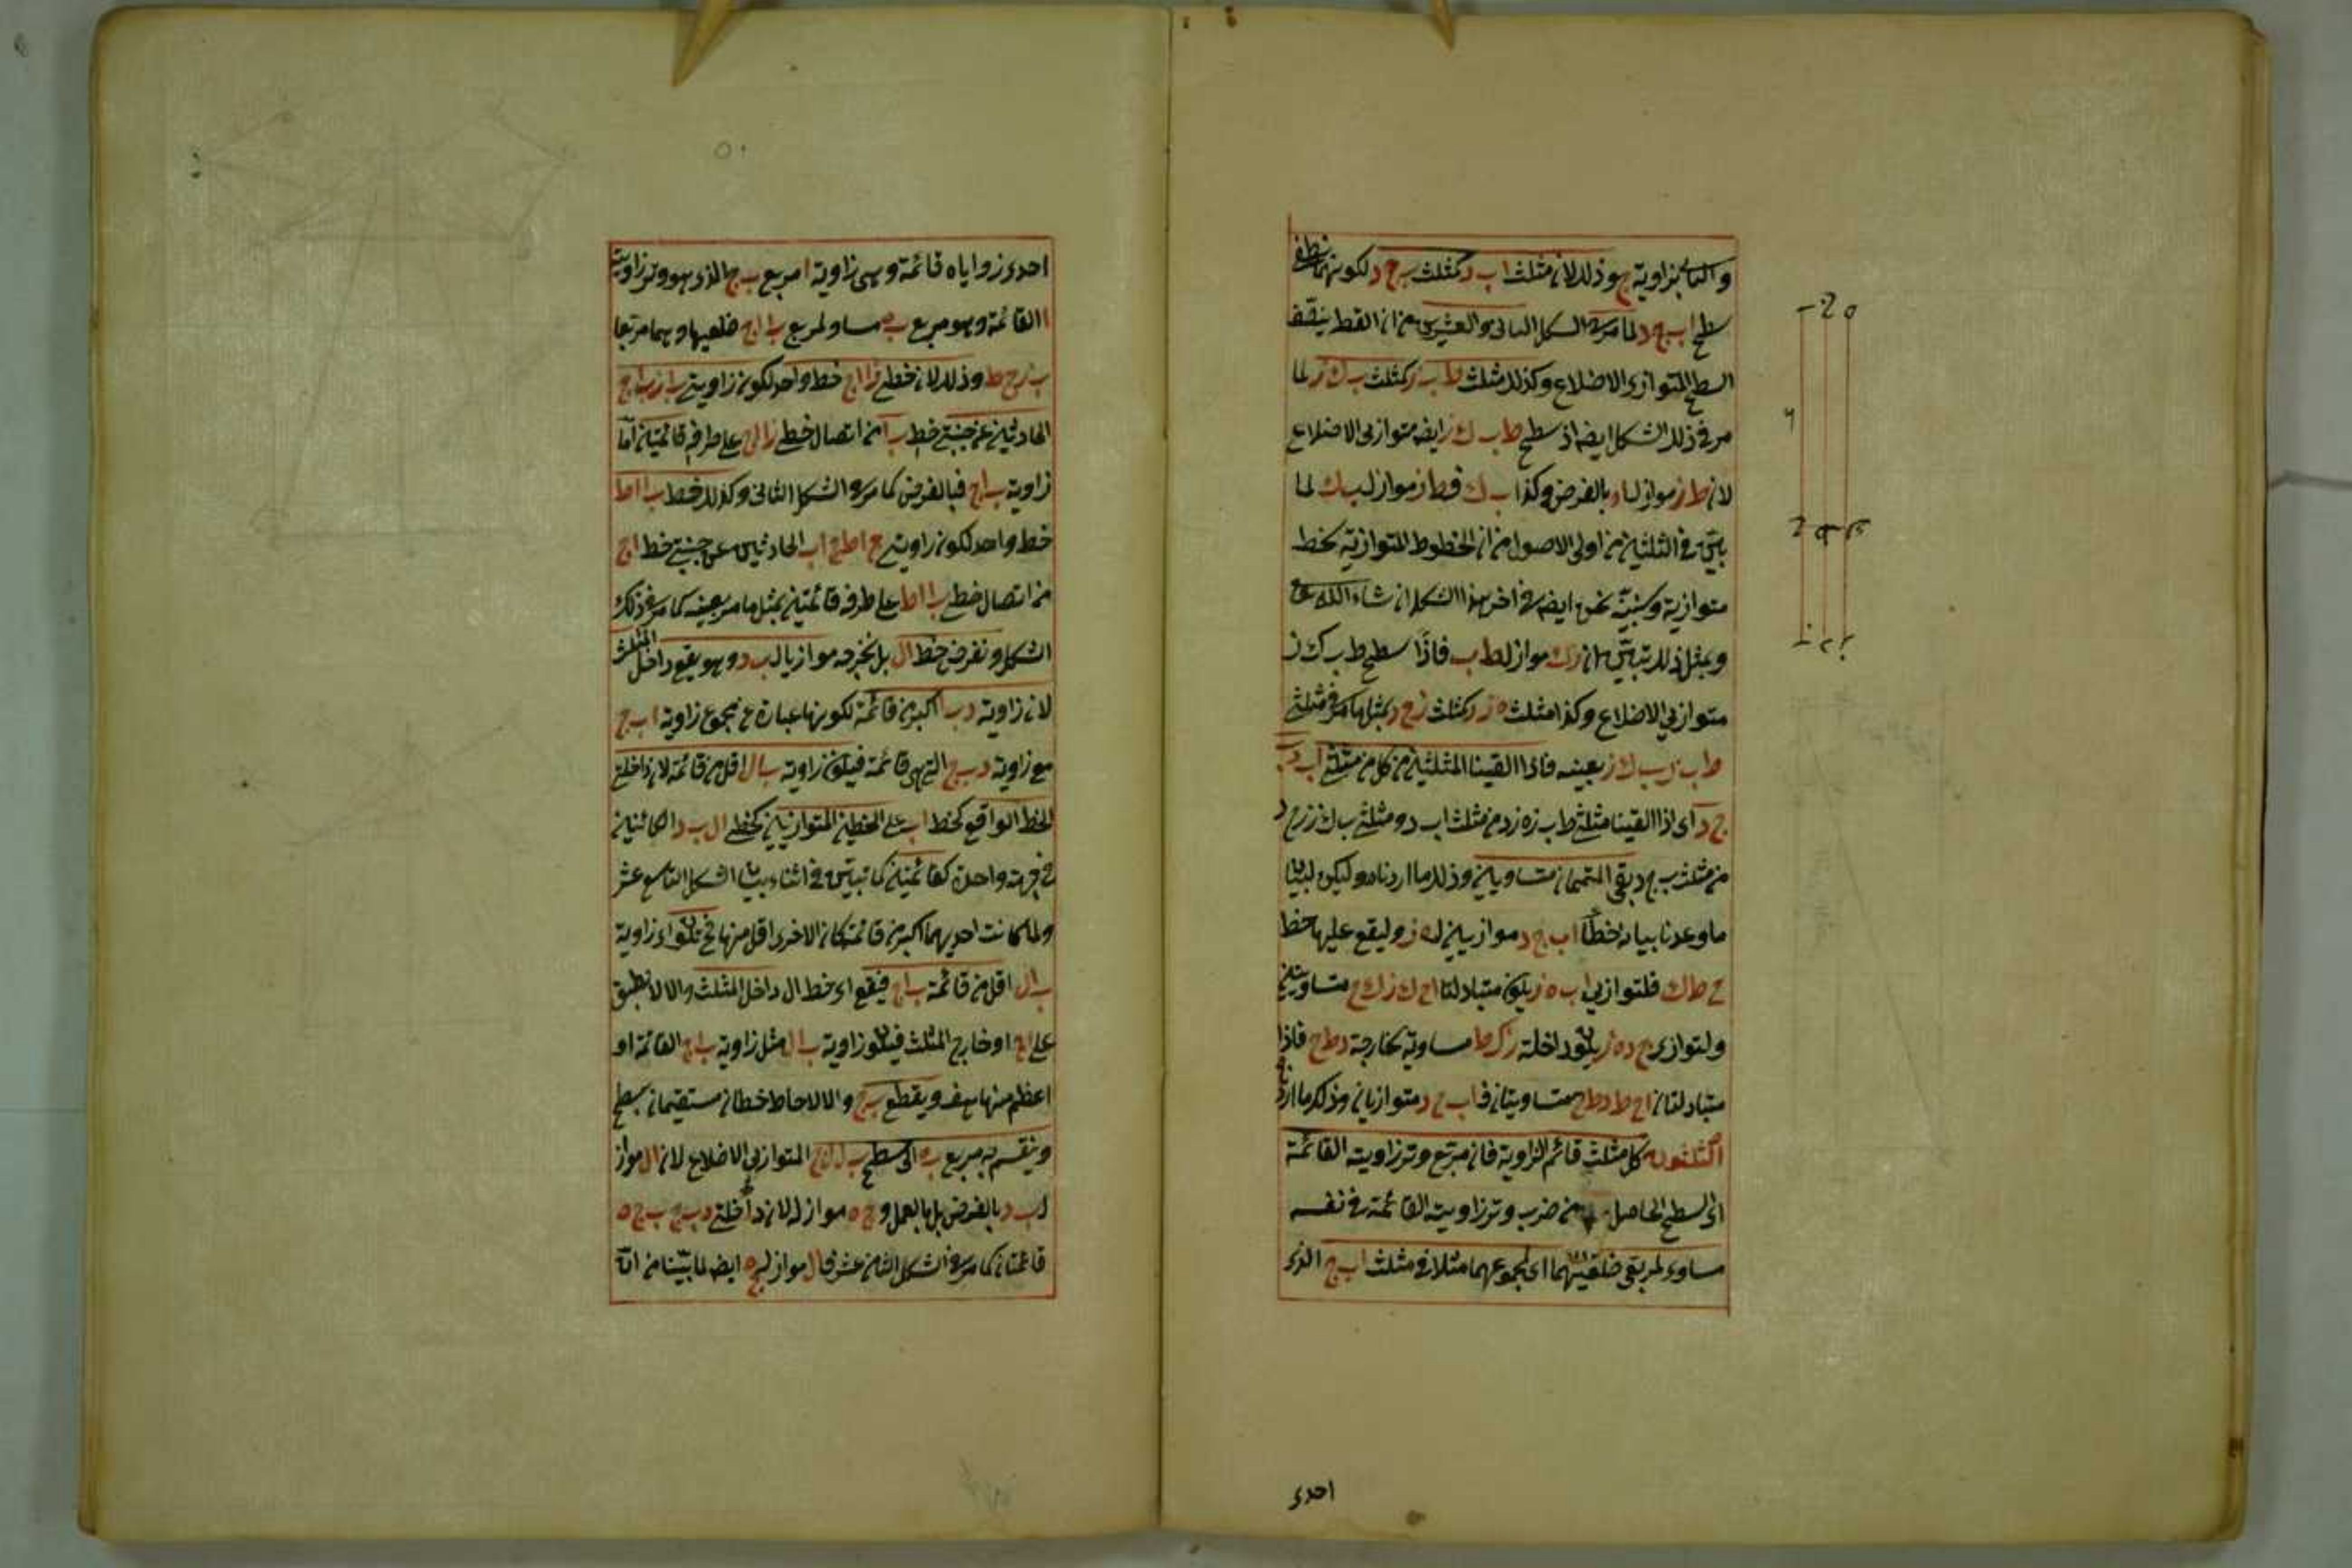 والثانى بزاوية ج وذلك لان مثلث ا ب د كمثلث ب ج د لكونهما نصفى
سطح ا ب ج د لما مر فى الشكل الثانى والعشرين من ان القطر ينصّف
السطح المتوازى الاضلاع وكذلك مثلث ط ب ز كمثلث ب ك ز لما
مر فى ذلك الشكل ايضه اذ سطح ط ب ك ز ايضه متوازى الاضلاع
لان ط ز مواز بالفرض وكذا ب ك فط ز مواز لب ك لما
بيّن فى الثلثين من اولى الاصول من ان الخطوط المتوازية لخط
متوازية وسنبيّنه نحن ايضه فى اخر هذا الشكل ان شاء الله تع
وبمثل ذلك تبيّن ان ز ك مواز لط ب فاذًا سطح ط ب ك ز
متوازى الاضلاع وكذا مثلث ه ز د كمثلث ز ح د بمثل ما مر فى مثلثى
ط ب ز ب ك ز بعينه فاذا القينا المثلثين من كل من مثلثى ا ب د ب
ج د اى اذا القينا مثلثى ط ب ز ه ز د من مثلث ا ب د ومثلثى ب ك ز ز ح د
من مثلث ب ج د بقى المتممان متساويين وذلك ما اردناه وليكن لبيان
ما وعدنا بيانه خطا ا ب ج د موازيين له ز وليقع عليها خط
ح ط ك فلتوازى ا ب ه ز يكون متبادلتا ا ح ك ز ك ح متساويتين
ولتوازى ج د ه ز يكون داخلة ز ك ط مساوية لخارجة د ط ح فاذا
متبادلتان ا ح ط د ط ح متساويتان فا ب ج د متوازيان وذلك ما اردناه
الثلثون كل مثلث قائم الزاوية فان مربع وتر زاويته القائمة
اى السطح الحاصل من ضرب وتر زاويته القائمة فى نفسه
مساو لمربعى ضلعيهما اى لمجموعهما مثلا فى مثلث ا ب ج الذى
احدى
احدى زواياه قائمة وهى زاوية ا مربع ب ج الذى هو وتر زاوية
ا القائمة وهو مربع ب ه مساو لمربعى ب ا ا ج ضلعيها وهما مربعا
ب ز ج ط وذلك لان خطى ز ا ا ج خط واحد لكون زاويتى ب ا ز ب ا ج
الحادثتين عن جنبتى خط ب ا من اتصال خطى ز ا ا ج على طرفه قائمتين اما
زاوية ب ا ج فبالفرض كما مر فى الشكل الثانى وكذلك خط ب ا ا ط
خط واحد لكون زاويتى ج ا ط ج ا ب الحادثتين عن جنبتى خط ا ج
من اتصال خطى ب ا ا ط على طرفه قائمتين بمثل ما مر بعينه كما مر فى ذلك
الشكل ونفرض خط ا ل بل نخرجه موازيا ل ب د وهو يقع داخل المثلث
لان زاوية د ب ا اكبر من قائمة لكونها عبارة عن مجموع زاوية ا ب ج
مع زاوية د ب ج التى هى قائمة فيكون زاوية ب ا ل اقل من قائمة لان داخلتى
الخط الواقع كخط ا ب على الخطين المتوازيين كخطى ا ل ب د الكائنين
فى جهة واحدة كقائمتين كما تبيّن فى اثناء بيان الشكل التاسع عشر
ولما كانت احديهما اكبر من قائمة كان الاخرى اقل منها فح تكون اى زاوية
ب ا ل اقل من قائمة ب ا ج فيقع اى خط ا ل داخل المثلث والا لانطبق
على ا ج او خارج المثلث فيكون زاوية ب ا ل مثل زاوية ب ا ج القائمة او
اعظم منها هف ويقطع ب ج والا لاحاط خطان مستقيمان بسطح
وينقسم به مربع ب ه الى سطحى ب ل ل ج المتوازى الاضلاع لان ا ل مواز
لب د بالفرض بل بالعمل وج ه مواز له لان داخلتى د ب ج ب ج ه
قائمتان كما مر فى الشكل الثامن عشر فا ل مواز لج ه ايضه لما بيّنا من انّه